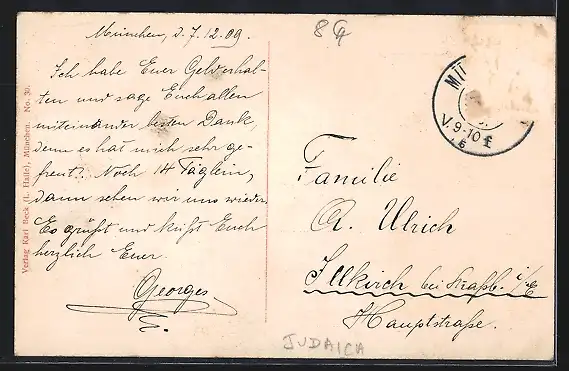 München, d. 7. 12. 09.
Ich habe Euer Geld erhal-
ten und sage Euch allen
miteinander besten Dank,
denn es hat mich sehr ge-
freut! Noch 14 Täglein,
dann sehen wir uns wieder.
Es grüßt und küßt Euch
herzlich Euer
Georges
Verlag Karl Beck (L. Halle), München. No. 30.
MÜ
V. 9-10
Familie
A. Ulrich
Illkirch bei Straßb. i/E
Hauptstraße.
JUDAICA